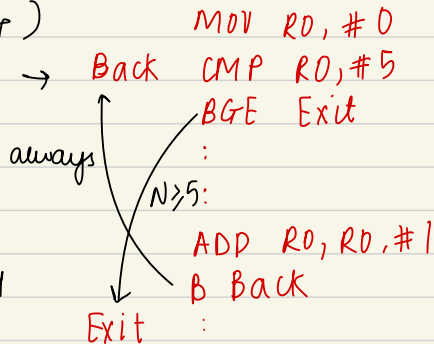 )
MOV R0, #0
→ Back CMP R0, #5
BGE Exit
always :
N≥5 :
ADD R0, R0, #1
B Back
Exit :